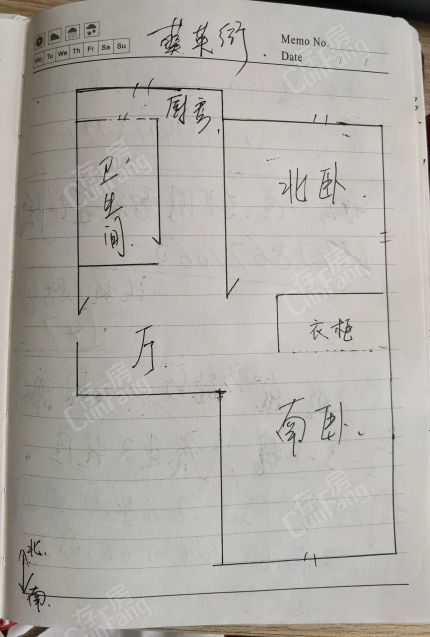 英街
Memo No.
Mo Tu We Th Fr Sa Su
Date
厨房
卫生间
北卧
衣柜
厅
南卧
北
南